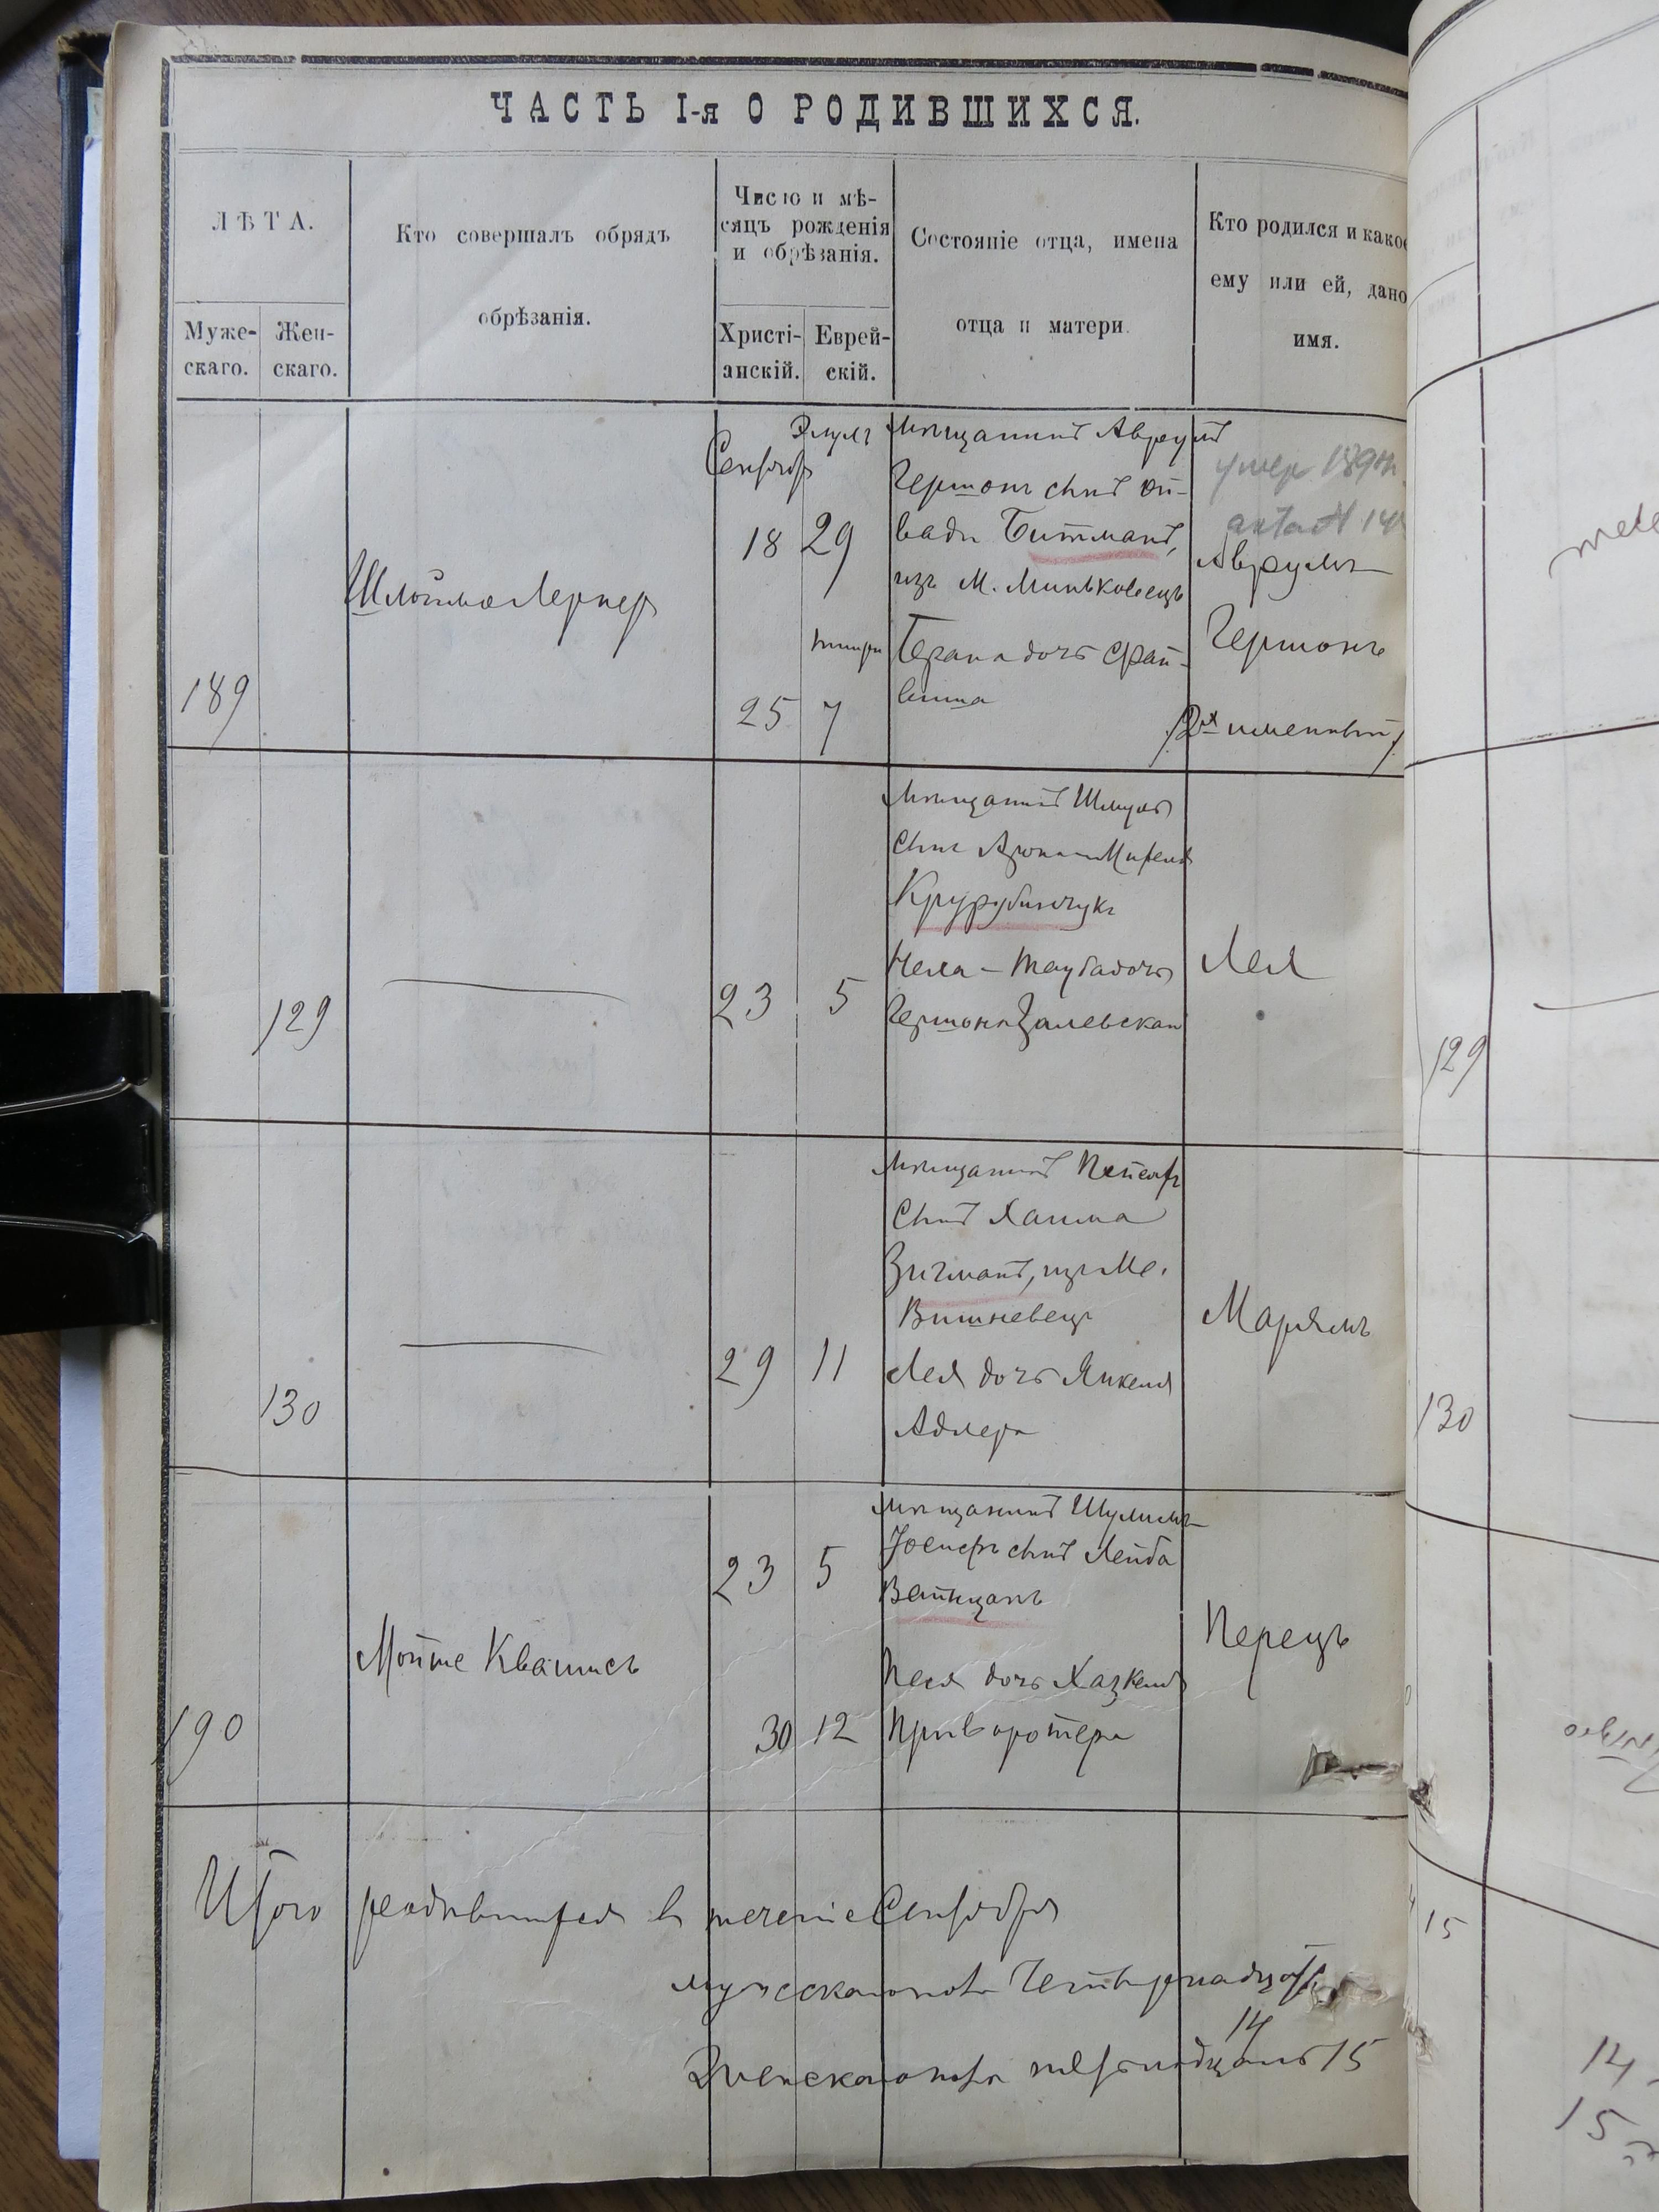 ЧАСТЬ I-я О РОДИВШИХСЯ.
ЛѢТА.
Муже-
скаго.
Жен-
скаго.
Кто совершалъ обрядъ
обрѣзанія.
Число и мѣ-
сяцъ рожденія
и обрѣзанія.
Христі-
анскій.
Еврей-
скій.
Состояніе отца, имена
отца и матери.
Кто родился и какое
ему или ей, дано
имя.
189
Шлойма Лернеръ
Сентябр
Элулъ
18 29
Тишри
25 7
Мѣщанинъ Аврумъ
Гершонъ сынъ
Битманъ,
изъ М. Миньковецъ
дочь Фай-
виша
умер 189
акта № 14
Аврумъ
Гершонъ
/2х именный/
129
23 5
Мѣщанинъ Шмуль
сынъ Арона-
Крурубинчукъ
Неха-Тауба дочь
Гершона Залевская
Лея
129
130
29 11
Мѣщанинъ
сынъ Хаима
Зигманъ, изъ М.
Вишневецъ
Лея дочь Янкеля
Адлера
Марямъ
130
190
Мойше Квашисъ
23 5
30 12
Мѣщанинъ Шулимъ
Іосифъ сынъ Лейба
Вейнцанъ
Песя дочь Хазкеля
Приворотера
Перецъ
Итого родившихся в течение Сентября
мужскаго пола Четырнадцать
14
Женскаго пола пятьнадцать 15
15
14
15